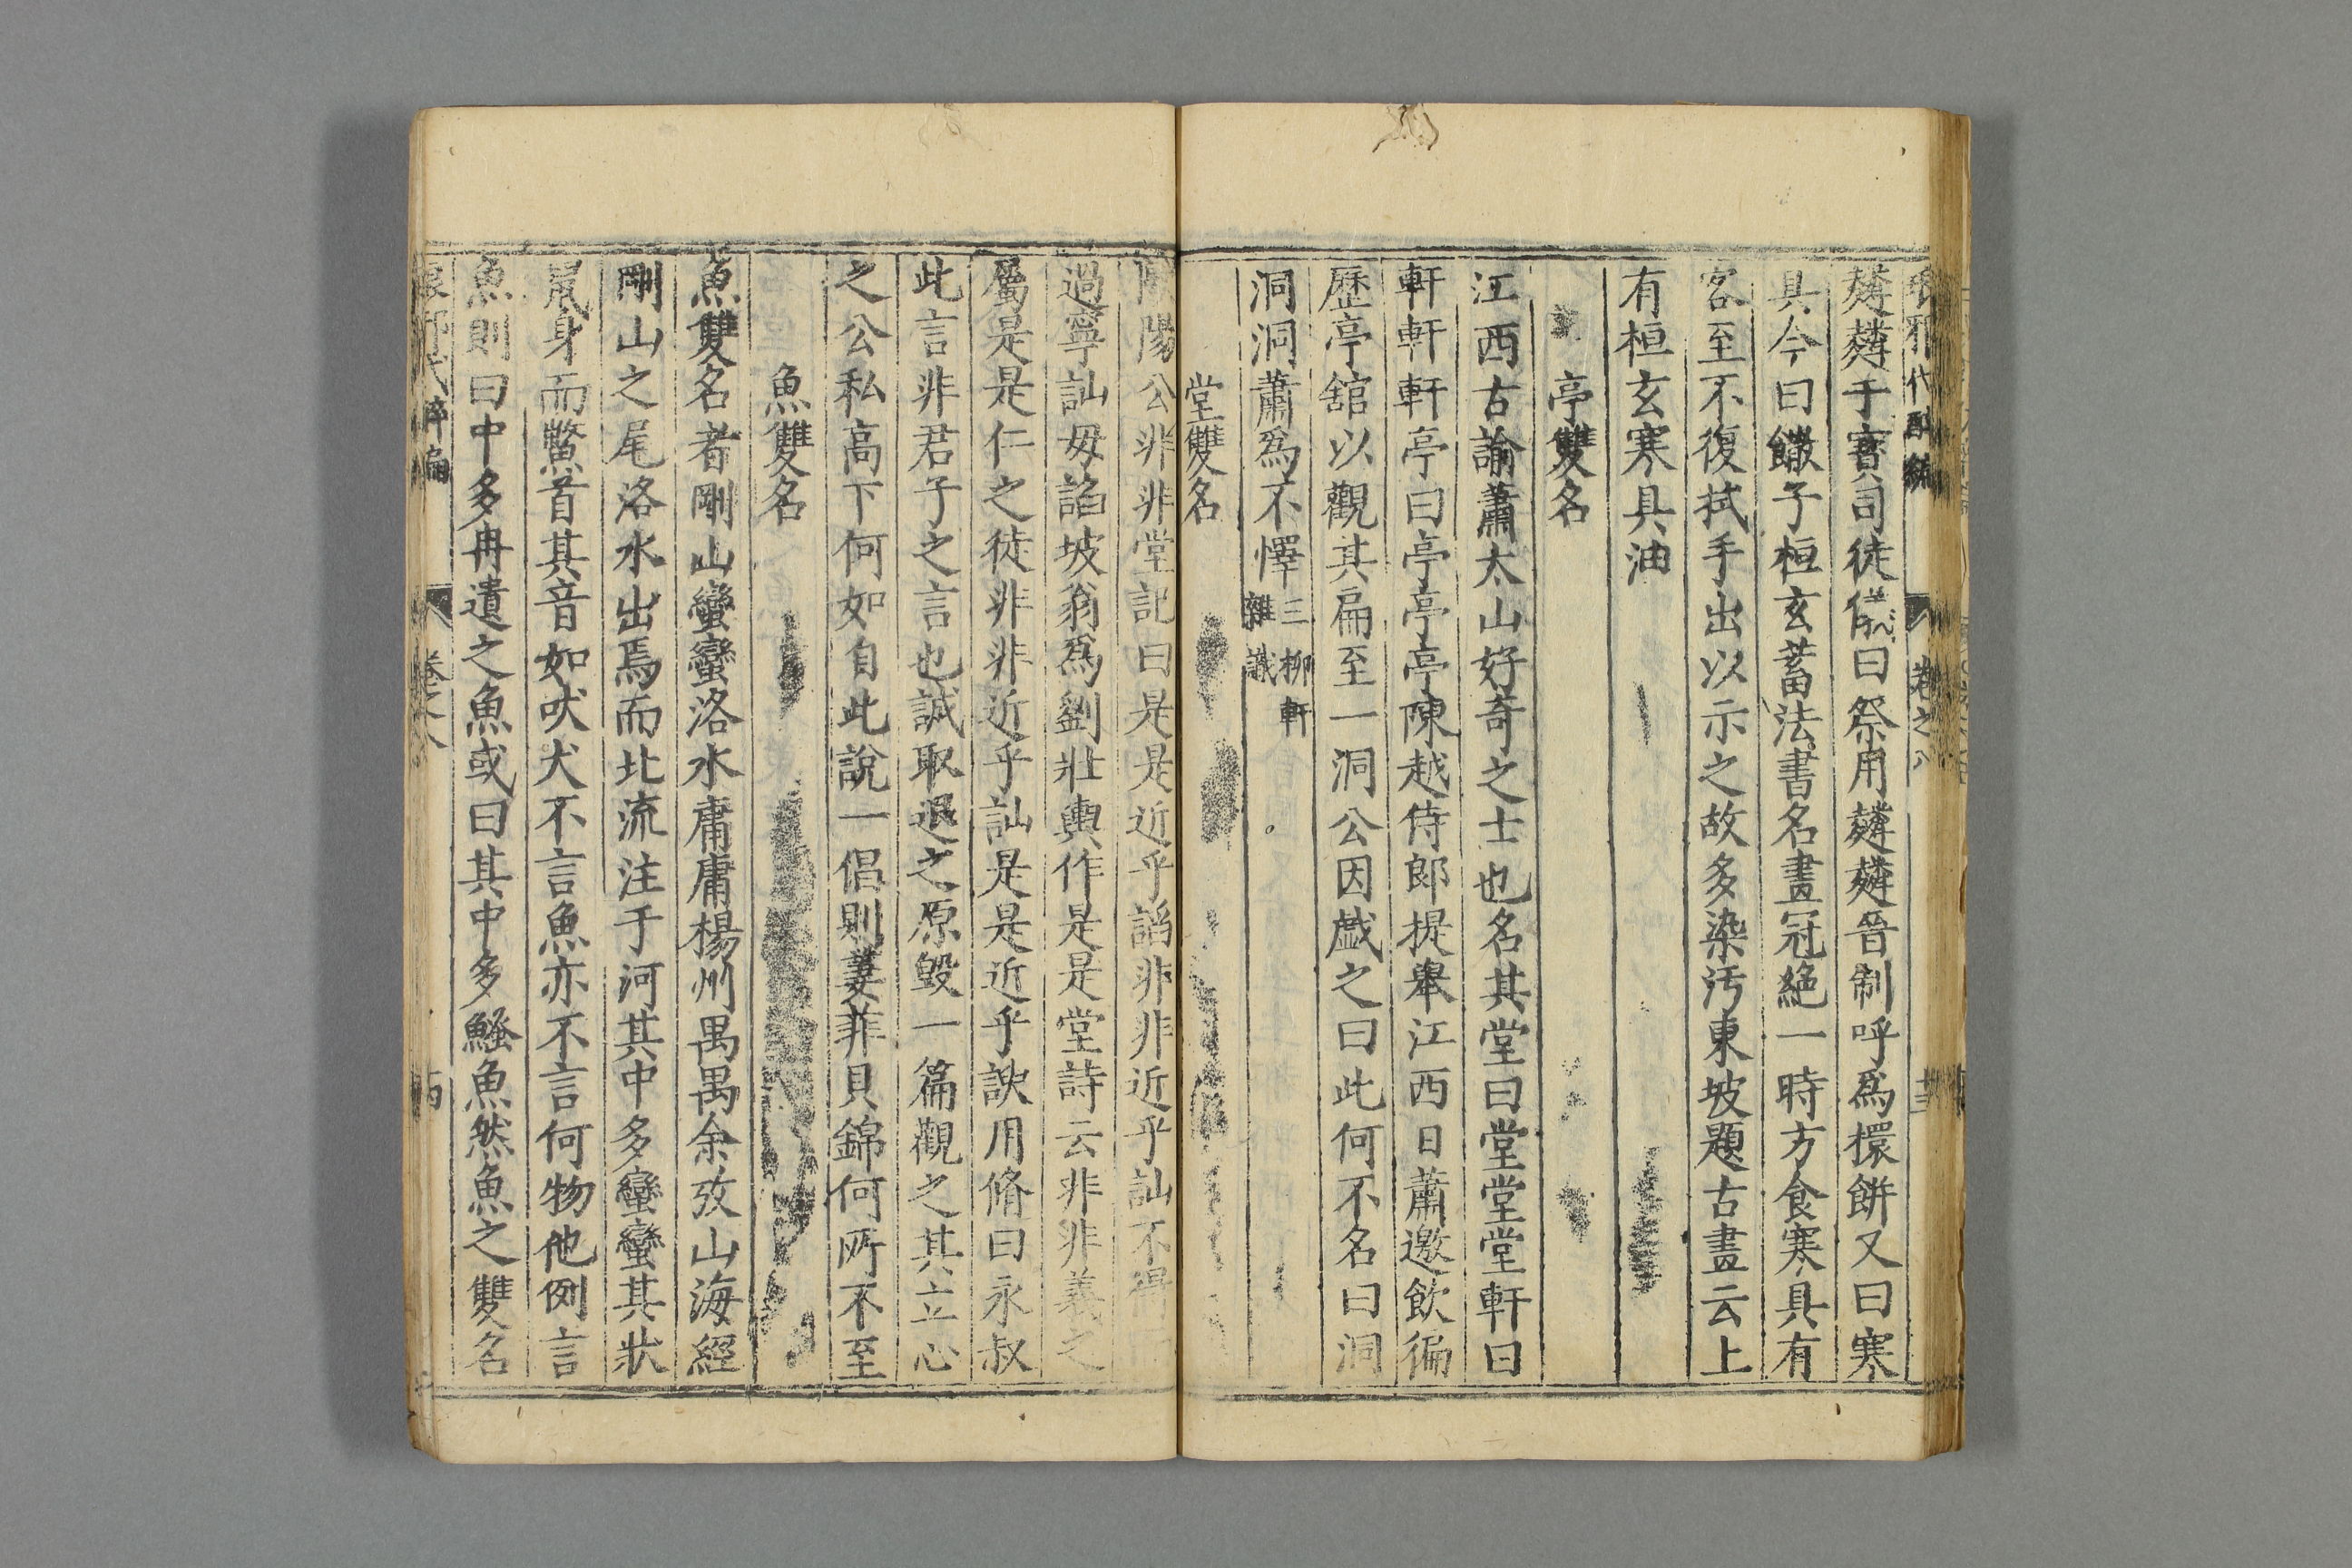 琅邪代醉編 卷之八 十三
𪍷𪍷干寶司徒儀曰祭用𪍷𪍷晉制呼爲𣝔餅又曰寒
具今曰饊子桓玄蓄法書名畫冠絶一時方食寒具有
客至不復拭手出以示之故多染汚東坡題古畫云上
有桓玄寒具油
亭雙名
江西古諭蕭太山好奇之士也名其堂曰堂堂堂軒曰
軒軒軒亭曰亭亭亭陳越侍郎提舉江西日蕭邀飲徧
歷亭舘以觀其扁至一洞公因戯之曰此何不名曰洞
洞洞蕭爲不懌三柳軒雜識
堂雙名
陽公非非堂記曰是是近乎諂非非近乎訕不得
過寧訕毋諂坡翁爲劉壯輿作是是堂詩云非非義之
屬是是仁之徒非非近乎訕是是近乎諛用脩曰永叔
此言非君子之言也誠取退之原毀一篇觀之其立心
之公私高下何如自此說一倡則萋菲貝錦何所不至
魚雙名
魚雙名者剛山蠻蠻洛水鱅鱅楊州禺禺余攷山海經
剛山之尾洛水出焉而北流注于河其中多蠻蠻其狀
鼠身而鱉首其音如吠犬不言魚亦不言何物他例言
魚則曰中多冉遺之魚或曰其中多鰠魚然魚之雙名
琅邪代醉編 卷之八